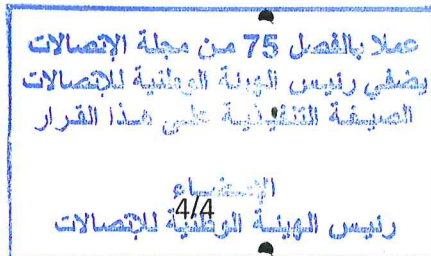 عملا بالفصل 75 من مجلة الإتصالات
يضفي رئيس الهيئة الوطنية للإتصالات
الصيغة التنفيذية على هذا القرار
الإمضاء
4/4
رئيس الهيئة الوطنية للإتصالات